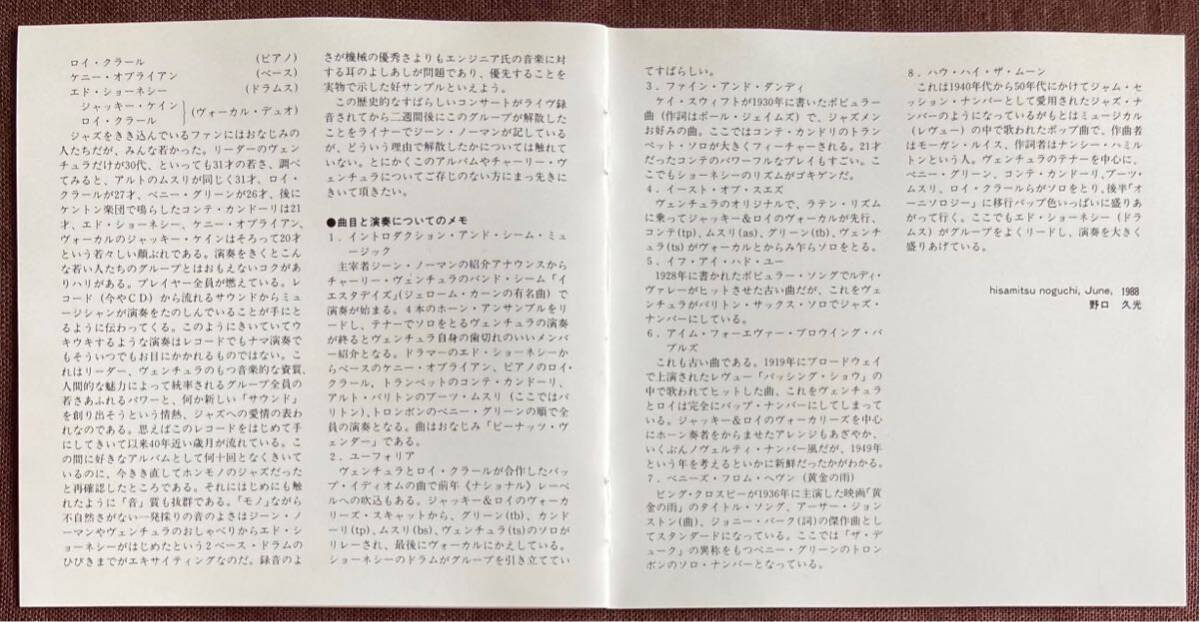 ロイ・クラール (ピアノ)
ケニー・オブライアン (ベース)
エド・ショーネシー (ドラムス)
ジャッキー・ケイン
ロイ・クラール (ヴォーカル・デュオ)
ジャズをきき込んでいるファンにはおなじみの
人たちだが、みんな若かった。リーダーのヴェン
チュラだけが30代、といっても31才の若さ、調べ
てみると、アルトのムスリが同じく31才、ロイ・
クラールが27才、ベニー・グリーンが26才、後に
ケントン楽団で鳴らしたコンテ・カンドーリは21
才、エド・ショーネシー、ケニー・オブライアン、
ヴォーカルのジャッキー・ケインはそろって20才
という若々しい顔ぶれである。演奏をきくとこん
な若い人たちのグループとはおもえないコクがあ
りハリがある。プレイヤー全員が燃えている。レ
コード(今やCD)から流れるサウンドからミュ
ージシャンが演奏をたのしんでいることが手にと
るように伝わってくる。このようにきいていてウ
キウキするような演奏はレコードでもナマ演奏で
もそういつでもお目にかかれるものではない。こ
れはリーダー、ヴェンチュラのもつ音楽的な資質、
人間的な魅力によって統率されるグループ全員の
若さあふれるパワーと、何か新しい「サウンド」
を創り出そうという情熱、ジャズへの愛情の表わ
れなのである。思えばこのレコードをはじめて手
にしてきいて以来40年近い歳月が流れている。こ
の間に好きなアルバムとして何十回となくきいて
いるのに、今きき直してホンモノのジャズだった
と再確認したところである。それにはじめにも触
れたように「音」質も抜群である。「モノ」ながら
不自然さがない一発採りの音のよさはジーン・ノ
ーマンやヴェンチュラのおしゃべりからエド・シ
ョーネシーがはじめたという2ベース・ドラムの
ひびきまでがエキサイティングなのだ。録音のよ
さが機械の優秀さよりもエンジニア氏の音楽に対
する耳のよしあしが問題であり、優先することを
実物で示した好サンプルといえよう。
この歴史的なすばらしいコンサートがライヴ録
音されてから二週間後にこのグループが解散した
ことをライナーでジーン・ノーマンが記している
が、どういう理由で解散したかについては触れて
いない。とにかくこのアルバムやチャーリー・ヴ
ェンチュラについてご存じのない方にまっ先きに
きいて頂きたい。
●曲目と演奏についてのメモ
1．イントロダクション・アンド・シーム・ミュ
ージック
主宰者ジーン・ノーマンの紹介アナウンスから
チャーリー・ヴェンチュラのバンド・シーム「イ
エスタデイズ」(ジェローム・カーンの有名曲)で
演奏が始まる。4本のホーン・アンサンブルをリ
ードし、テナーでソロをとるヴェンチュラの演奏
が終るとヴェンチュラ自身の歯切れのいいメンバ
ー紹介となる。ドラマーのエド・ショーネシーか
らベースのケニー・オブライアン、ピアノのロイ・
クラール、トランペットのコンテ・カンドーリ、
アルト・バリトンのブーツ・ムスリ(ここではバ
リトン)、トロンボンのベニー・グリーンの順で全
員の演奏となる。曲はおなじみ「ピーナッツ・ヴ
ェンダー」である。
2．ユーフォリア
ヴェンチュラとロイ・クラールが合作したバッ
プ・イディオムの曲で前年《ナショナル》レーベ
ルへの吹込もある。ジャッキー＆ロイのヴォーカ
リーズ・スキャットから、グリーン(tb)、カンド
ーリ(tp)、ムスリ(bs)、ヴェンチュラ(ts)のソロが
リレーされ、最後にヴォーカルにかえしている。
ショーネシーのドラムがグループを引き立ててい
てすばらしい。
3．ファイン・アンド・ダンディ
ケイ・スウィフトが1930年に書いたポピュラー
曲(作詞はポール・ジェイムズ)で、ジャズメン
お好みの曲。ここではコンテ・カンドリのトラン
ペット・ソロが大きくフィーチャーされる。21才
だったコンテのパワーフルなプレイもすごい。こ
こでもショーネシーのリズムがゴキゲンだ。
4．イースト・オブ・スエズ
ヴェンチュラのオリジナルで、ラテン・リズム
に乗ってジャッキー＆ロイのヴォーカルが先行、
コンテ(tp)、ムスリ(as)、グリーン(tb)、ヴェンチ
ュラ(ts)がヴォーカルとからみ乍らソロをとる。
5．イフ・アイ・ハド・ユー
1928年に書かれたポピュラー・ソングでルディ・
ヴァレーがヒットさせた古い曲だが、これをヴェ
ンチュラがバリトン・サックス・ソロでジャズ・
ナンバーにしている。
6．アイム・フォーエヴァー・ブロウイング・バ
ブルズ
これも古い曲である。1919年にブロードウェイ
で上演されたレヴュー「パッシング・ショウ」の
中で歌われてヒットした曲、これをヴェンチュラ
とロイは完全にバップ・ナンバーにしてしまって
いる。ジャッキー＆ロイのヴォーカリーズを中心
にホーン奏者をからませたアレンジもあざやか、
いくぶんノヴェルティ・ナンバー風だが、1949年
という年を考えるといかに新鮮だったかがわかる。
7．ペニーズ・フロム・ヘヴン(黄金の雨)
ビング・クロスビーが1936年に主演した映画「黄
金の雨」のタイトル・ソング、アーサー・ジョン
ストン(曲)、ジョニー・バーク(詞)の傑作曲とし
てスタンダードになっている。ここでは「ザ・デ
ューク」の異称をもつベニー・グリーンのトロン
ボンのソロ・ナンバーとなっている。
8．ハウ・ハイ・ザ・ムーン
これは1940年代から50年代にかけてジャム・セ
ッション・ナンバーとして愛用されたジャズ・ナ
ンバーのようになっているがもとはミュージカル
(レヴュー)の中で歌われたポップ曲で、作曲者
はモーガン・ルイス、作詞者はナンシー・ハミル
トンという人。ヴェンチュラのテナーを中心に、
ベニー・グリーン、コンテ・カンドーリ、ブーツ・
ムスリ、ロイ・クラールらがソロをとり、後半「オ
ーニソロジー」に移行バップ色いっぱいに盛りあ
がって行く。ここでもエド・ショーネシー(ドラ
ムス)がグループをよくリードし、演奏を大きく
盛りあげている。
hisamitsu noguchi, June, 1988
野口 久光